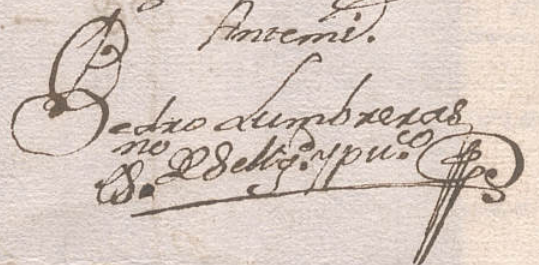 Antemi.
Pedro Lumbreras
es.no Rl del Nº. y pu.co